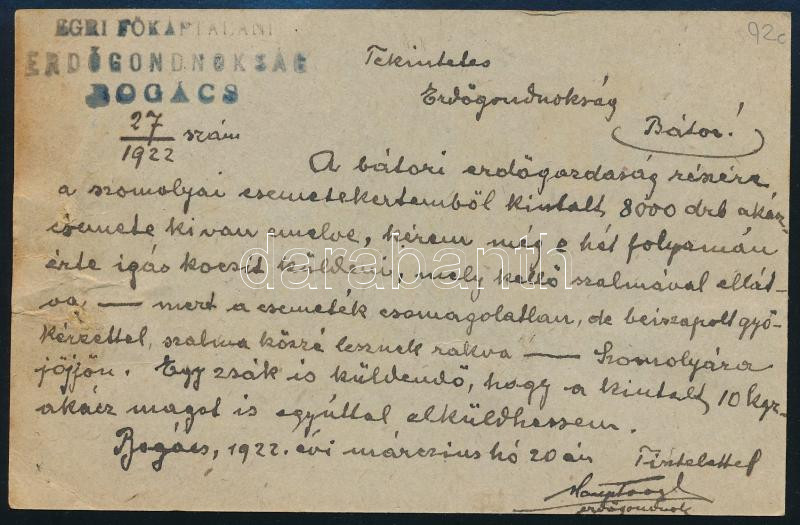 EGRI FŐKÁPTALANI
ERDŐGONDNOKSÁG
BOGÁCS
92c
27 szám
1922
Tekintetes
Erdőgondnokság
Bátor!
A bátori erdőgazdaság részére
a szomolyai csemetekertemből kiutalt 8000 drb akác-
csemete ki van emelve, kérem még e hét folyamán
érte igás kocsit küldeni, mely kellő szalmával ellát-
va — mert a csemeték csomagolatlan, de beiszapolt gyö-
kérzettel, szalma közzé lesznek rakva — Szomolyára
jöjjön. Egy zsák is küldendő, hogy a kiutalt 10 kgr-
akácz magot is egyúttal elküldhessem.
Bogács, 1922. évi márczius hó 20 án Tisztelettel
erdőgondnok
darabanth